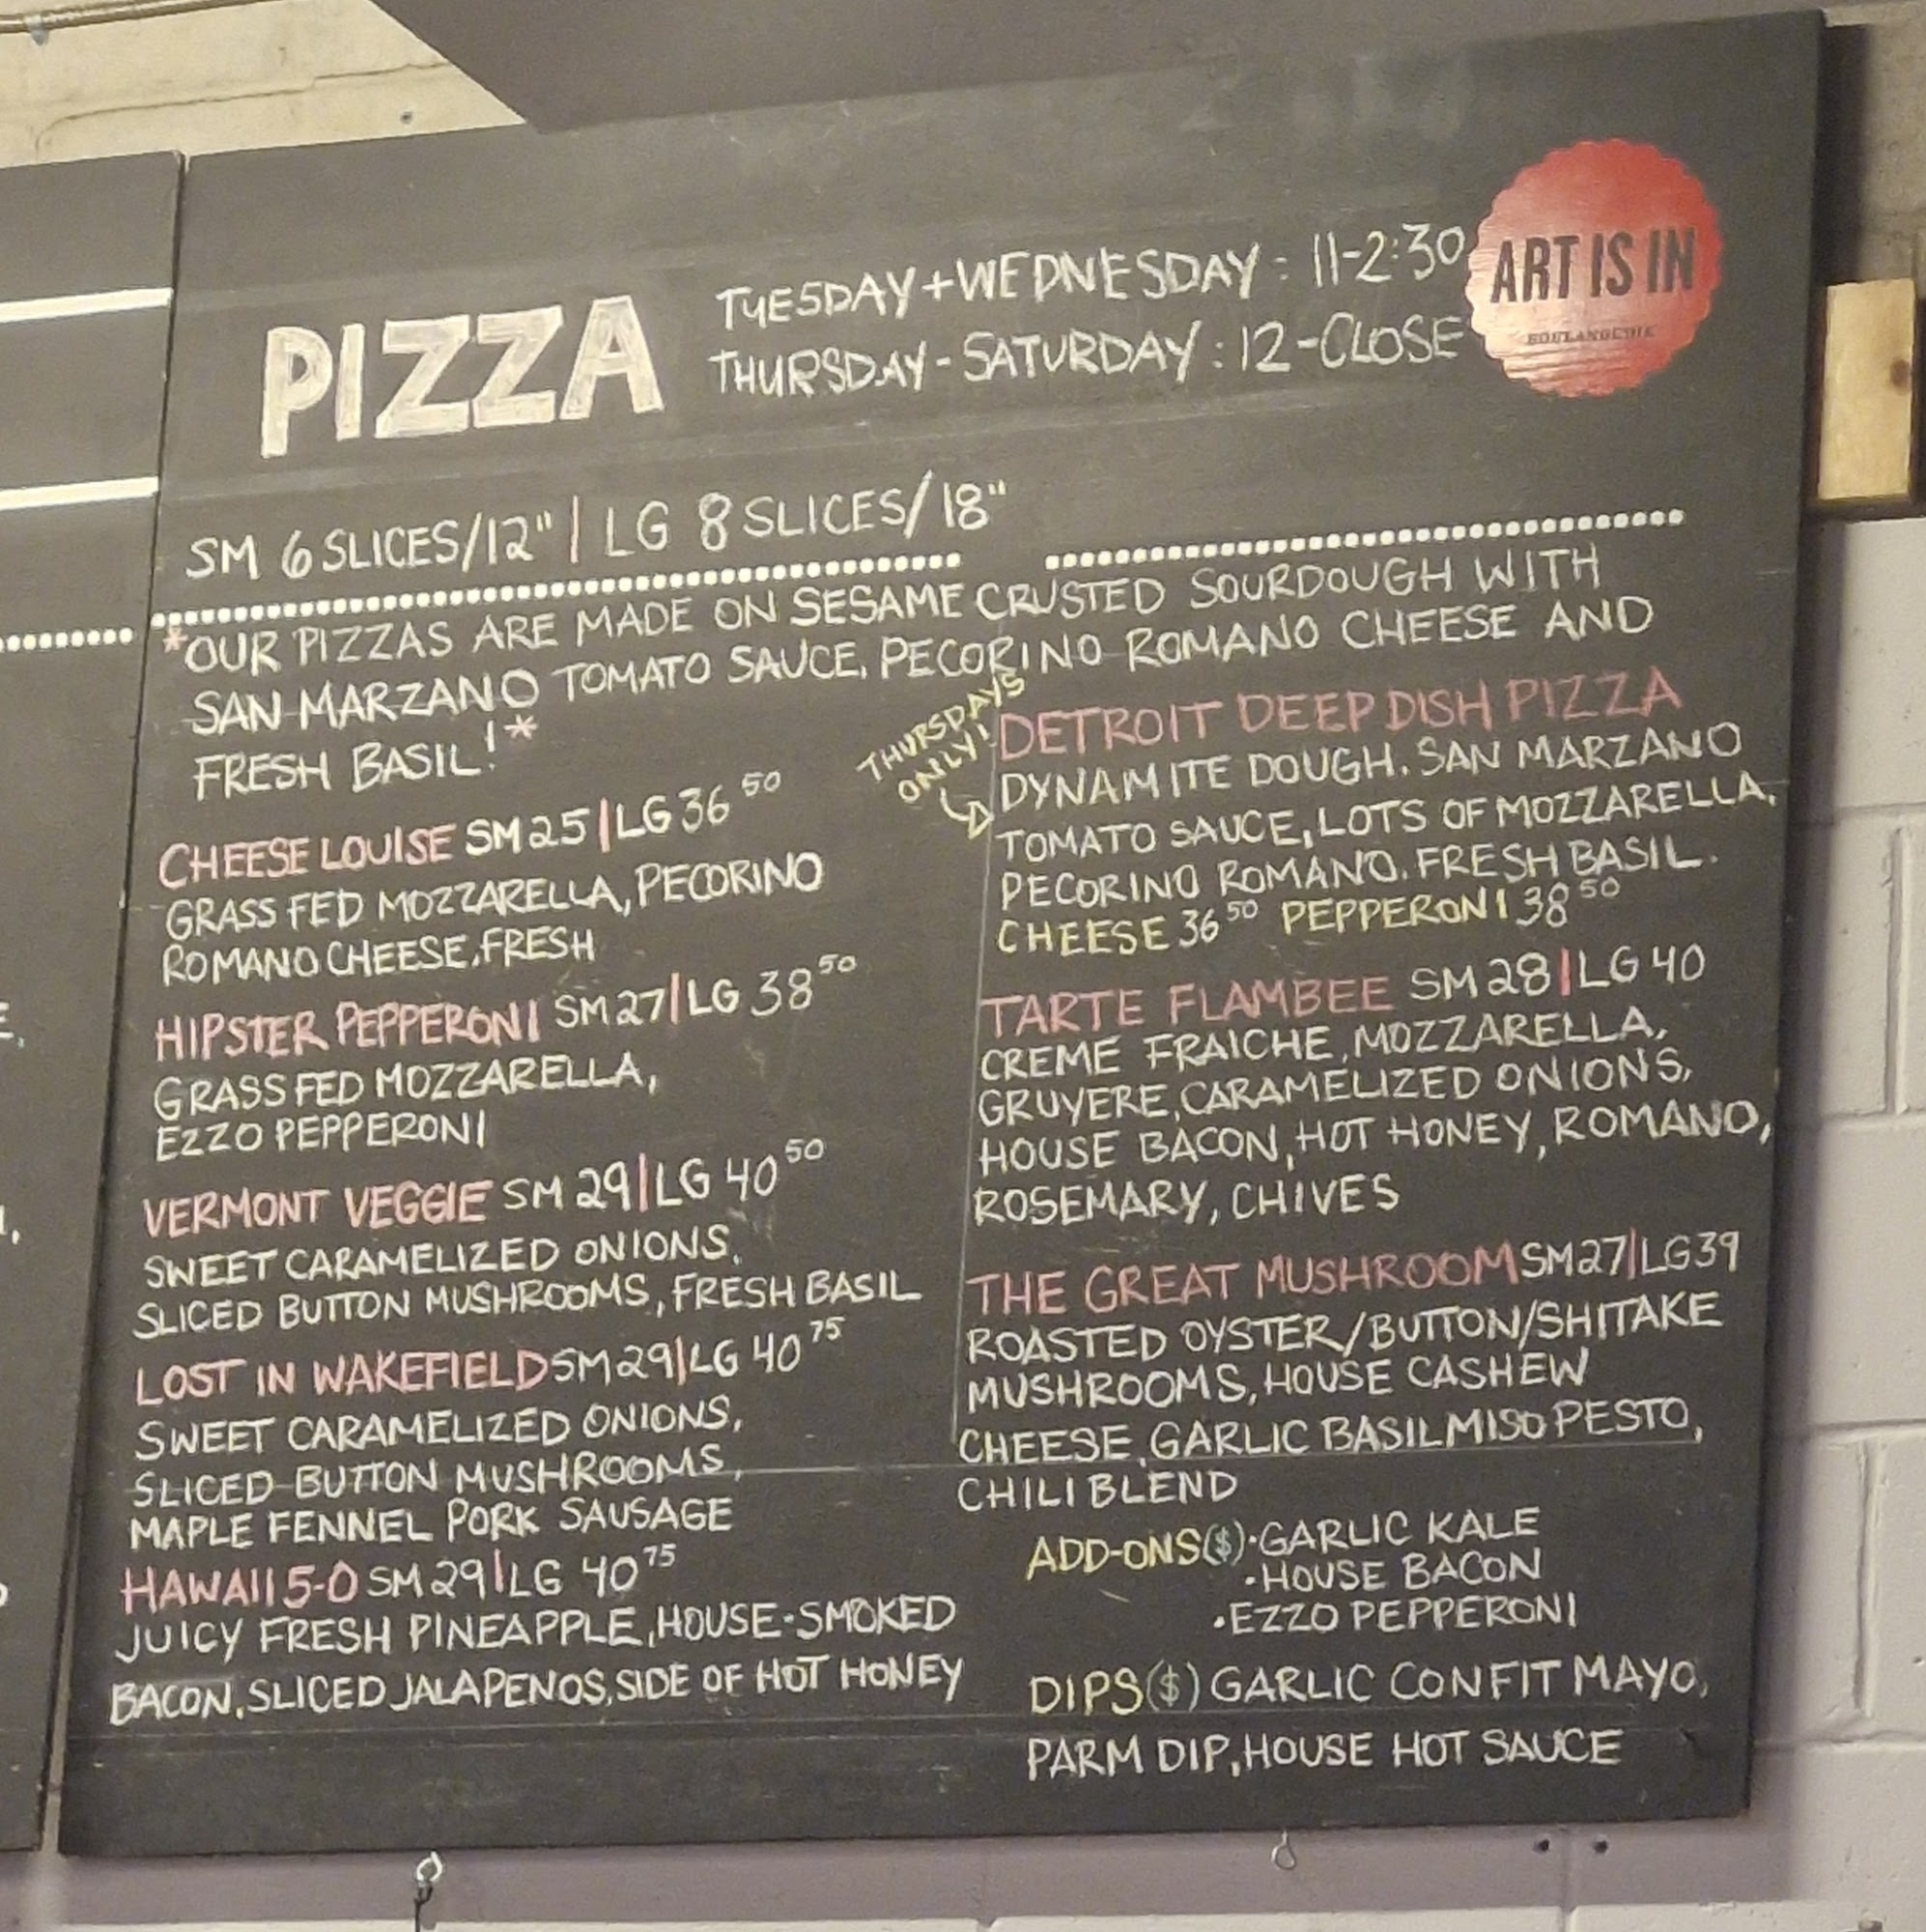 PIZZA
TUESDAY+WEDNESDAY: 11-2:30
THURSDAY-SATURDAY: 12-CLOSE
ART IS IN
BOULANGERIE
SM 6 SLICES/12" | LG 8 SLICES/18"
*OUR PIZZAS ARE MADE ON SESAME CRUSTED SOURDOUGH WITH
SAN MARZANO TOMATO SAUCE, PECORINO ROMANO CHEESE AND
FRESH BASIL!*
CHEESE LOUISE SM 25 | LG 36 50
GRASS FED MOZZARELLA, PECORINO
ROMANO CHEESE, FRESH
HIPSTER PEPPERONI SM 27 | LG 38 50
GRASS FED MOZZARELLA,
EZZO PEPPERONI
VERMONT VEGGIE SM 29 | LG 40 50
SWEET CARAMELIZED ONIONS,
SLICED BUTTON MUSHROOMS, FRESH BASIL
LOST IN WAKEFIELD SM 29 | LG 40 75
SWEET CARAMELIZED ONIONS,
SLICED BUTTON MUSHROOMS,
MAPLE FENNEL PORK SAUSAGE
HAWAII 5-0 SM 29 | LG 40 75
JUICY FRESH PINEAPPLE, HOUSE-SMOKED
BACON, SLICED JALAPENOS, SIDE OF HOT HONEY
THURSDAYS
ONLY!
DETROIT DEEP DISH PIZZA
DYNAMITE DOUGH. SAN MARZANO
TOMATO SAUCE, LOTS OF MOZZARELLA,
PECORINO ROMANO. FRESH BASIL.
CHEESE 36 50 PEPPERONI 38 50
TARTE FLAMBEE SM 28 | LG 40
CREME FRAICHE, MOZZARELLA,
GRUYERE, CARAMELIZED ONIONS,
HOUSE BACON, HOT HONEY, ROMANO,
ROSEMARY, CHIVES
THE GREAT MUSHROOM SM 27 | LG 39
ROASTED OYSTER/BUTTON/SHITAKE
MUSHROOMS, HOUSE CASHEW
CHEESE, GARLIC BASIL MISO PESTO,
CHILI BLEND
ADD-ONS($) ·GARLIC KALE
·HOUSE BACON
·EZZO PEPPERONI
DIPS($) GARLIC CONFIT MAYO,
PARM DIP, HOUSE HOT SAUCE